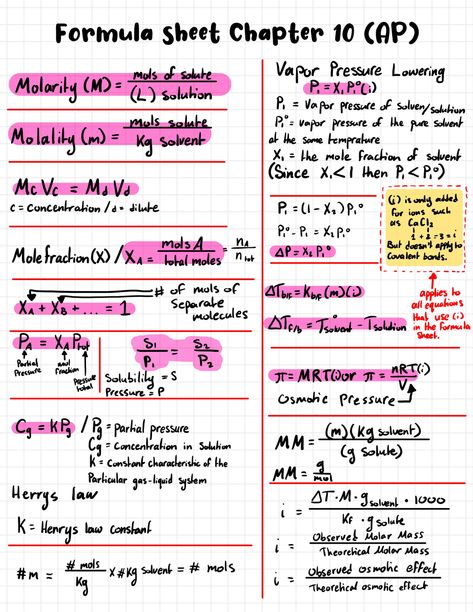 Formula sheet Chapter 10 (AP)
Molarity (M) = mols of solute / (L) solution
Molality (m) = mols solute / Kg solvent
McVc = MdVd
c = concentration / d = dilute
Mole fraction (X) / XA = mols A / total moles = nA / ntot
# of mols of
Separate
molecules
XA + XB + ... = 1
PA = XA Ptot
Partial Pressure
mol fraction
Pressure total
S1 / P1 = S2 / P2
Solubility = S
Pressure = P
Cg = KPg / Pg = Partial pressure
Cg = Concentration in Solution
K = Constant characteristic of the
Particular gas-liquid system
Henrys law
K = Henrys law constant
#m = # mols / Kg X #Kg solvent = # mols
Vapor Pressure Lowering
P1 = X1 P1°(i)
P1 = Vapor pressure of solven/solution
P1° = vapor pressure of the pure solvent
at the same temprature
X1 = the mole fraction of solvent
(Since X1<1 then P1<P1°)
P1 = (1 - X2) P1°
P1° - P1 = X2 P1°
ΔP = X2 P1°
(i) is only added
for ions such
as CaCl2
1 + 2 = 3 = i
But doesn't apply to
covalent bonds.
applies to
all equations
that use (i)
in the Formula
Sheet.
ΔTb/F = Kb/F (m)(i)
ΔTF/b = T°solvent - Tsolution
π = MRT(i) or π = nRT(i) / V
Osmotic Pressure
MM = (m)(Kg solvent) / (g solute)
MM = g / mol
i = ΔT · M · g solvent · 1000 / KF · g solute
i = Observed Molar Mass / Theoretical Molar Mass
i = Observed osmotic effect / Theoretical osmotic effect